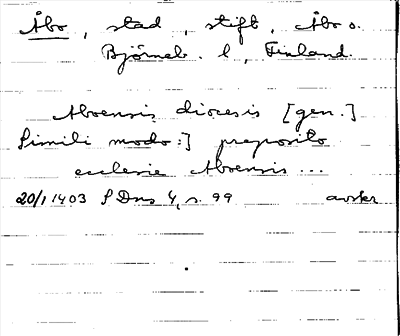 Åbo, stad, stift, Åbo o.
Björneb. l, Finland.
Aboensis diocesis [gen.]
Simili modo:] preposito
ecclesie Aboensis ...
20/1 1403 SDns 1, s. 99 avskr